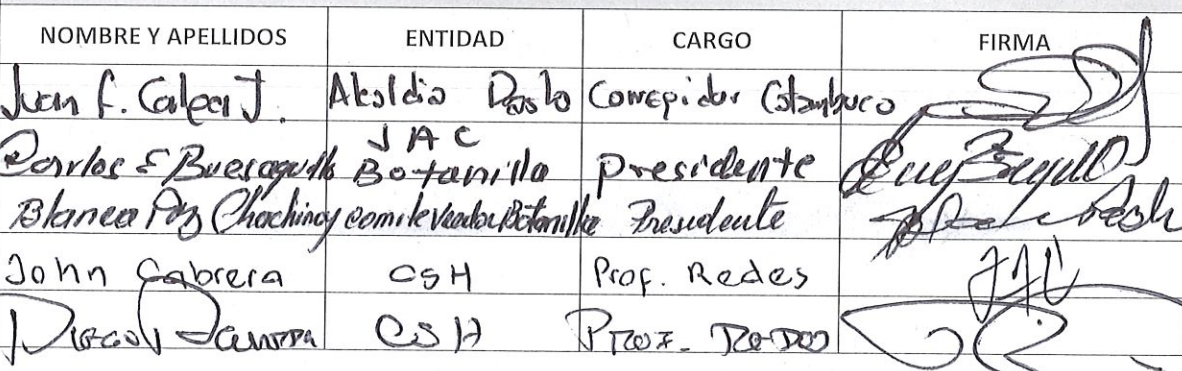 NOMBRE Y APELLIDOS ENTIDAD CARGO FIRMA
Juan f. Calpa J. Alcaldia Pasto Corregidor Catambuco
Carlos E Buesaquillo JAC Botanilla presidente
Blanca Paz Chachinoy comite veedor Botanilla Presidente
John Cabrera CSH Prof. Redes
Diego CSH Prof. Redes